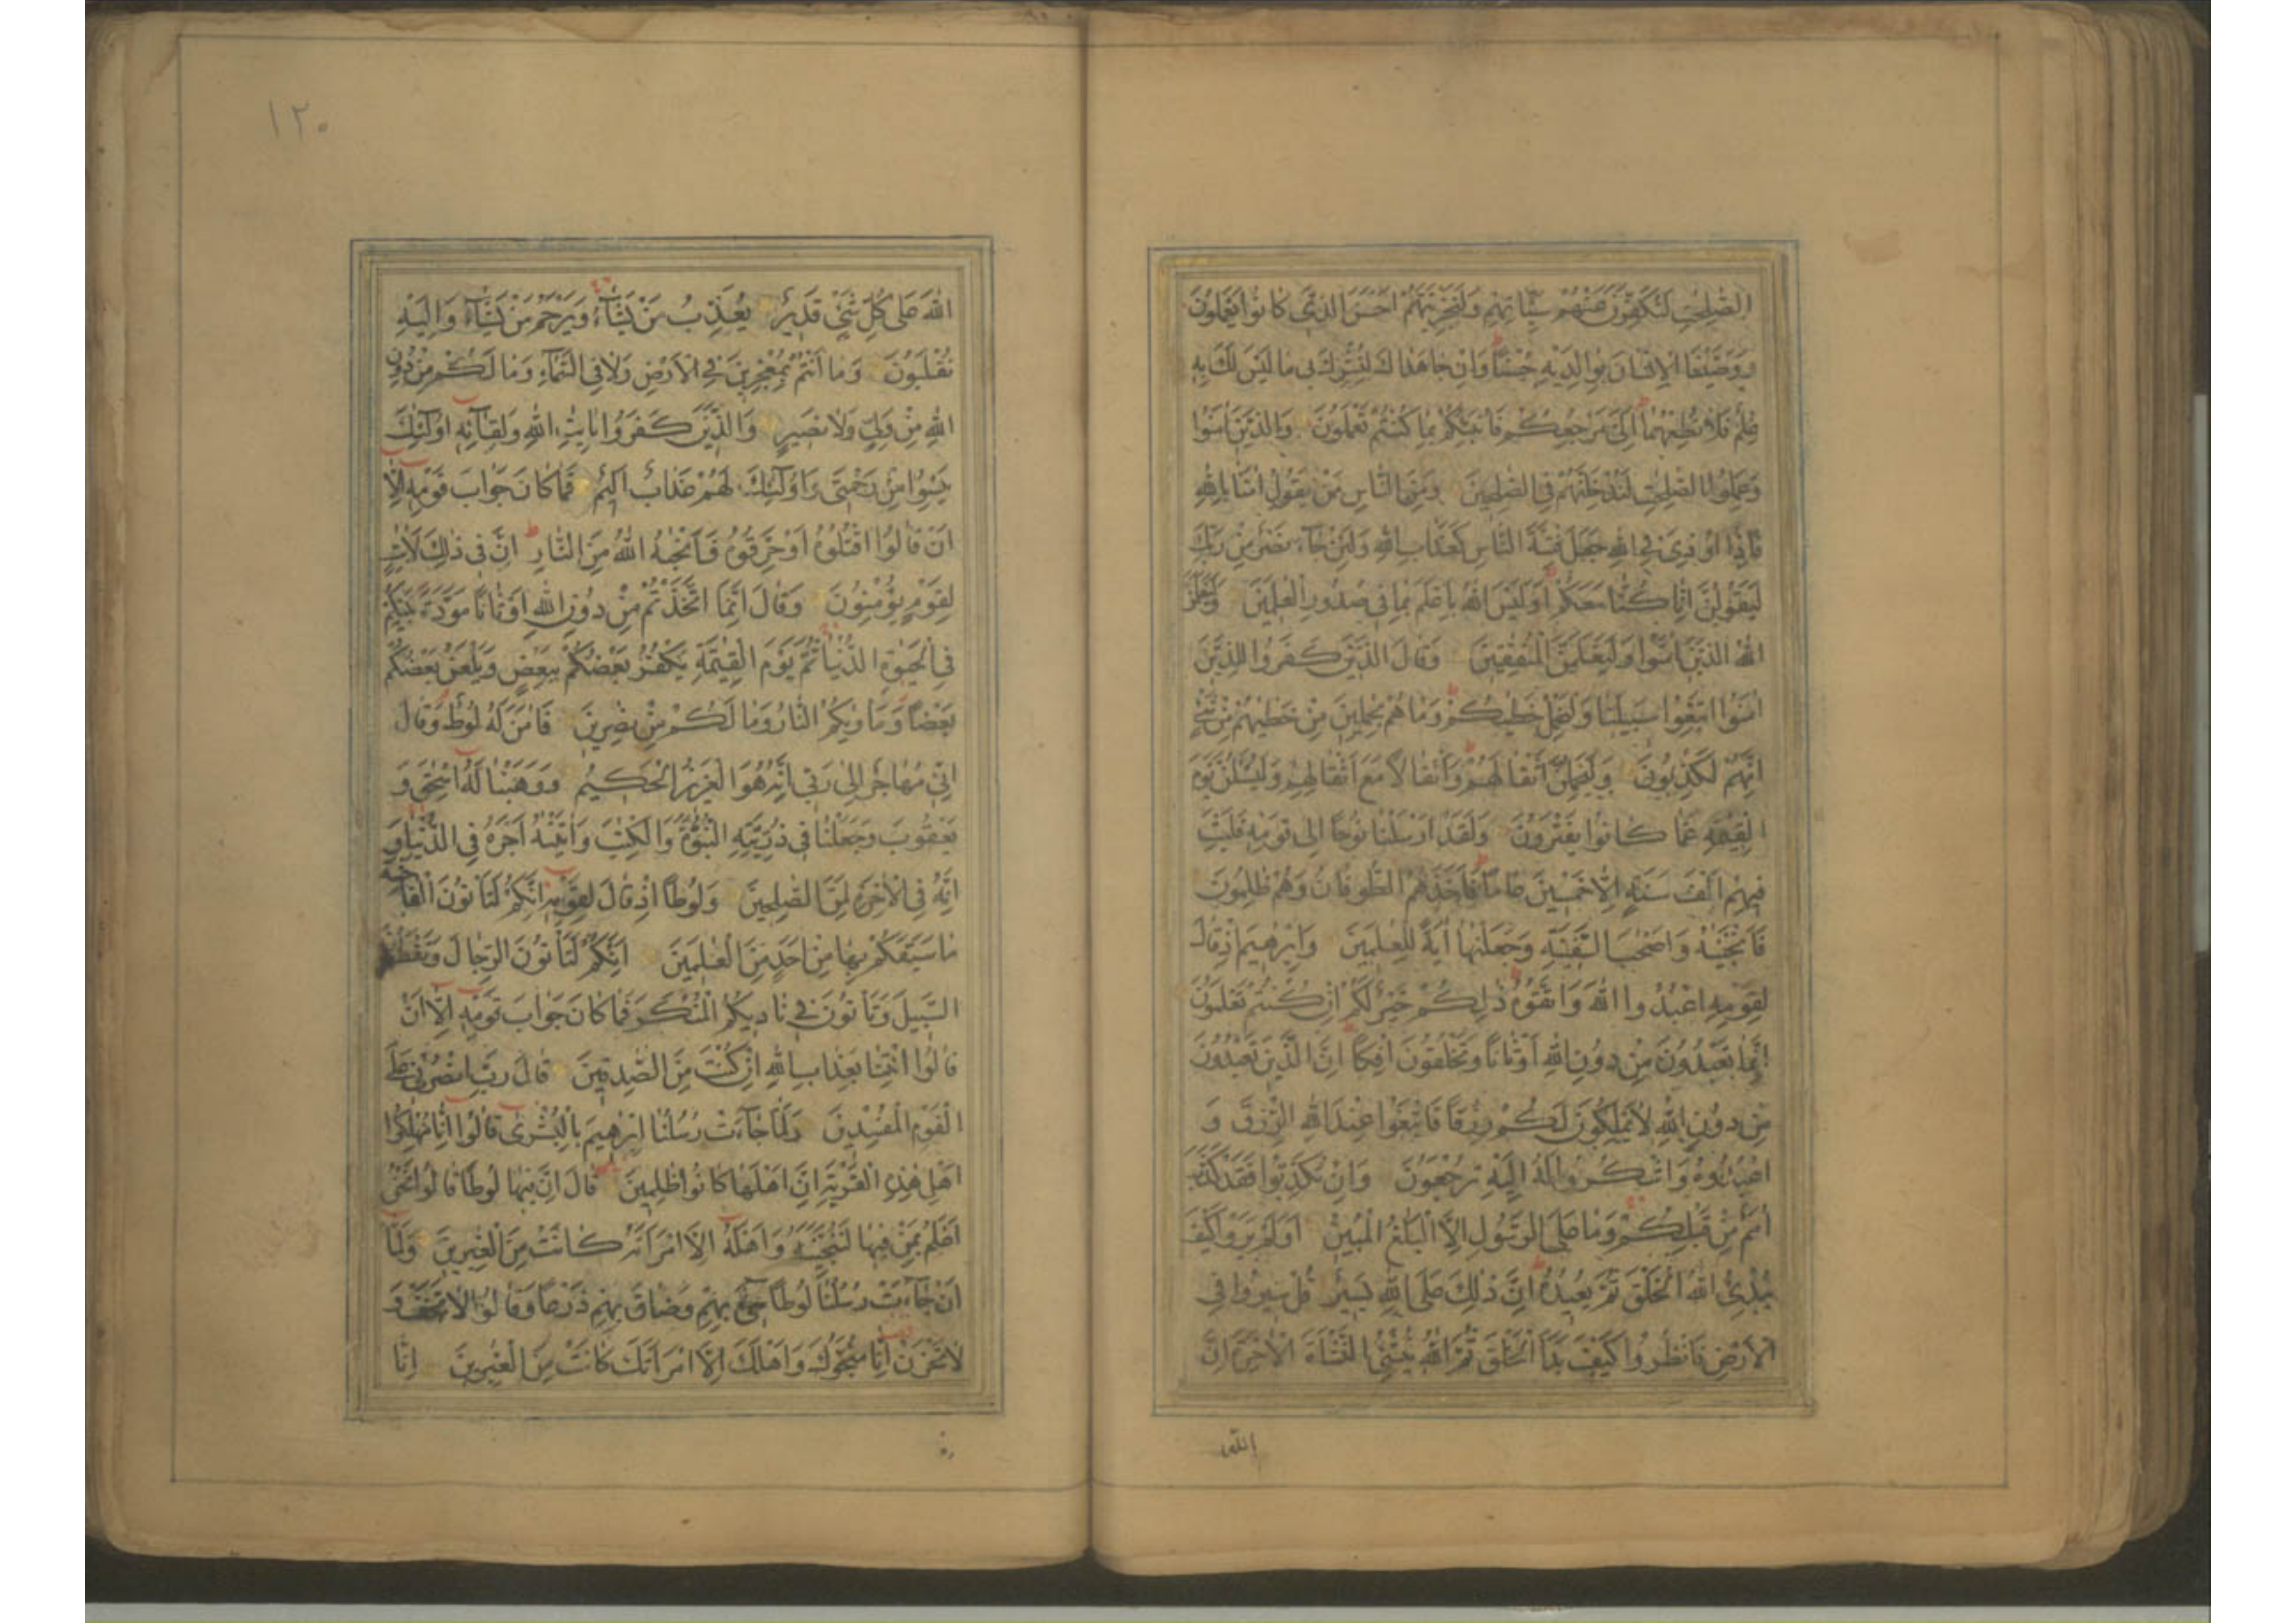 الصّٰلِحٰتِ لَنُكَفِّرَنَّ عَنْهُمْ سَيِّاٰتِهِمْ وَلَنَجْزِيَنَّهُمْ اَحْسَنَ الَّذِى كَانُوا يَعْمَلُونَ
وَوَصَّيْنَا الْاِنْسَانَ بِوَالِدَيْهِ حُسْنًا وَاِنْ جَاهَدَاكَ لِتُشْرِكَ بِى مَا لَيْسَ لَكَ بِهِ
عِلْمٌ فَلَا تُطِعْهُمَا اِلَىَّ مَرْجِعُكُمْ فَاُنَبِّئُكُمْ بِمَا كُنْتُمْ تَعْمَلُونَ وَالَّذِينَ اٰمَنُوا
وَعَمِلُوا الصّٰلِحٰتِ لَنُدْخِلَنَّهُمْ فِى الصّٰلِحِينَ وَمِنَ النَّاسِ مَنْ يَقُولُ اٰمَنَّا بِاللّٰهِ
فَاِذَا اُوْذِىَ فِى اللّٰهِ جَعَلَ فِتْنَةَ النَّاسِ كَعَذَابِ اللّٰهِ وَلَئِنْ جَآءَ نَصْرٌ مِنْ رَبِّكَ
لَيَقُولُنَّ اِنَّا كُنَّا مَعَكُمْ اَوَلَيْسَ اللّٰهُ بِاَعْلَمَ بِمَا فِى صُدُورِ الْعٰلَمِينَ وَلَيَعْلَمَنَّ
اللّٰهُ الَّذِينَ اٰمَنُوا وَلَيَعْلَمَنَّ الْمُنٰفِقِينَ وَقَالَ الَّذِينَ كَفَرُوا لِلَّذِينَ
اٰمَنُوا اتَّبِعُوا سَبِيلَنَا وَلْنَحْمِلْ خَطٰيٰكُمْ وَمَا هُمْ بِحٰمِلِينَ مِنْ خَطٰيٰهُمْ مِنْ شَىْءٍ
اِنَّهُمْ لَكٰذِبُونَ وَلَيَحْمِلُنَّ اَثْقَالَهُمْ وَاَثْقَالًا مَعَ اَثْقَالِهِمْ وَلَيُسْئَلُنَّ يَوْمَ
الْقِيٰمَةِ عَمَّا كَانُوا يَفْتَرُونَ وَلَقَدْ اَرْسَلْنَا نُوحًا اِلٰى قَوْمِهِ فَلَبِثَ
فِيهِمْ اَلْفَ سَنَةٍ اِلَّا خَمْسِينَ عَامًا فَاَخَذَهُمُ الطُّوفَانُ وَهُمْ ظٰلِمُونَ
فَاَنْجَيْنٰهُ وَاَصْحٰبَ السَّفِينَةِ وَجَعَلْنٰهَا اٰيَةً لِلْعٰلَمِينَ وَاِبْرٰهِيمَ اِذْ قَالَ
لِقَوْمِهِ اعْبُدُوا اللّٰهَ وَاتَّقُوهُ ذٰلِكُمْ خَيْرٌ لَكُمْ اِنْ كُنْتُمْ تَعْلَمُونَ
اِنَّمَا تَعْبُدُونَ مِنْ دُونِ اللّٰهِ اَوْثَانًا وَتَخْلُقُونَ اِفْكًا اِنَّ الَّذِينَ تَعْبُدُونَ
مِنْ دُونِ اللّٰهِ لَا يَمْلِكُونَ لَكُمْ رِزْقًا فَابْتَغُوا عِنْدَ اللّٰهِ الرِّزْقَ وَ
اعْبُدُوهُ وَاشْكُرُوا لَهُ اِلَيْهِ تُرْجَعُونَ وَاِنْ تُكَذِّبُوا فَقَدْ كَذَّبَ
اُمَمٌ مِنْ قَبْلِكُمْ وَمَا عَلَى الرَّسُولِ اِلَّا الْبَلٰغُ الْمُبِينُ اَوَلَمْ يَرَوْا كَيْفَ
يُبْدِئُ اللّٰهُ الْخَلْقَ ثُمَّ يُعِيدُهُ اِنَّ ذٰلِكَ عَلَى اللّٰهِ يَسِيرٌ قُلْ سِيرُوا فِى
الْاَرْضِ فَانْظُرُوا كَيْفَ بَدَاَ الْخَلْقَ ثُمَّ اللّٰهُ يُنْشِئُ النَّشْاَةَ الْاٰخِرَةَ اِنَّ
اللّٰه
١٢٠
اللّٰهَ عَلٰى كُلِّ شَىْءٍ قَدِيرٌ يُعَذِّبُ مَنْ يَشَآءُ وَيَرْحَمُ مَنْ يَشَآءُ وَاِلَيْهِ
تُقْلَبُونَ وَمَا اَنْتُمْ بِمُعْجِزِينَ فِى الْاَرْضِ وَلَا فِى السَّمَآءِ وَمَا لَكُمْ مِنْ دُونِ
اللّٰهِ مِنْ وَلِىٍّ وَلَا نَصِيرٍ وَالَّذِينَ كَفَرُوا بِاٰيٰتِ اللّٰهِ وَلِقَآئِهِ اُولٰٓئِكَ
يَئِسُوا مِنْ رَحْمَتِى وَاُولٰٓئِكَ لَهُمْ عَذَابٌ اَلِيمٌ فَمَا كَانَ جَوَابَ قَوْمِهِ اِلَّا
اَنْ قَالُوا اقْتُلُوهُ اَوْ حَرِّقُوهُ فَاَنْجٰهُ اللّٰهُ مِنَ النَّارِ اِنَّ فِى ذٰلِكَ لَاٰيٰتٍ
لِقَوْمٍ يُؤْمِنُونَ وَقَالَ اِنَّمَا اتَّخَذْتُمْ مِنْ دُونِ اللّٰهِ اَوْثَانًا مَوَدَّةَ بَيْنِكُمْ
فِى الْحَيٰوةِ الدُّنْيَا ثُمَّ يَوْمَ الْقِيٰمَةِ يَكْفُرُ بَعْضُكُمْ بِبَعْضٍ وَيَلْعَنُ بَعْضُكُمْ
بَعْضًا وَمَاْوٰيكُمُ النَّارُ وَمَا لَكُمْ مِنْ نٰصِرِينَ فَاٰمَنَ لَهُ لُوطٌ وَقَالَ
اِنِّى مُهَاجِرٌ اِلٰى رَبِّى اِنَّهُ هُوَ الْعَزِيزُ الْحَكِيمُ وَوَهَبْنَا لَهُ اِسْحٰقَ وَ
يَعْقُوبَ وَجَعَلْنَا فِى ذُرِّيَّتِهِ النُّبُوَّةَ وَالْكِتٰبَ وَاٰتَيْنٰهُ اَجْرَهُ فِى الدُّنْيَا وَ
اِنَّهُ فِى الْاٰخِرَةِ لَمِنَ الصّٰلِحِينَ وَلُوطًا اِذْ قَالَ لِقَوْمِهِ اِنَّكُمْ لَتَاْتُونَ الْفَاحِشَةَ
مَا سَبَقَكُمْ بِهَا مِنْ اَحَدٍ مِنَ الْعٰلَمِينَ اَئِنَّكُمْ لَتَاْتُونَ الرِّجَالَ وَتَقْطَعُونَ
السَّبِيلَ وَتَاْتُونَ فِى نَادِيكُمُ الْمُنْكَرَ فَمَا كَانَ جَوَابَ قَوْمِهِ اِلَّا اَنْ
قَالُوا ائْتِنَا بِعَذَابِ اللّٰهِ اِنْ كُنْتَ مِنَ الصّٰدِقِينَ قَالَ رَبِّ انْصُرْنِى عَلَى
الْقَوْمِ الْمُفْسِدِينَ وَلَمَّا جَآءَتْ رُسُلُنَا اِبْرٰهِيمَ بِالْبُشْرٰى قَالُوا اِنَّا مُهْلِكُوا
اَهْلِ هٰذِهِ الْقَرْيَةِ اِنَّ اَهْلَهَا كَانُوا ظٰلِمِينَ قَالَ اِنَّ فِيهَا لُوطًا قَالُوا نَحْنُ
اَعْلَمُ بِمَنْ فِيهَا لَنُنَجِّيَنَّهُ وَاَهْلَهُ اِلَّا امْرَاَتَهُ كَانَتْ مِنَ الْغٰبِرِينَ وَلَمَّا
اَنْ جَآءَتْ رُسُلُنَا لُوطًا سِىءَ بِهِمْ وَضَاقَ بِهِمْ ذَرْعًا وَقَالُوا لَا تَخَفْ وَ
لَا تَحْزَنْ اِنَّا مُنَجُّوكَ وَاَهْلَكَ اِلَّا امْرَاَتَكَ كَانَتْ مِنَ الْغٰبِرِينَ اِنَّا